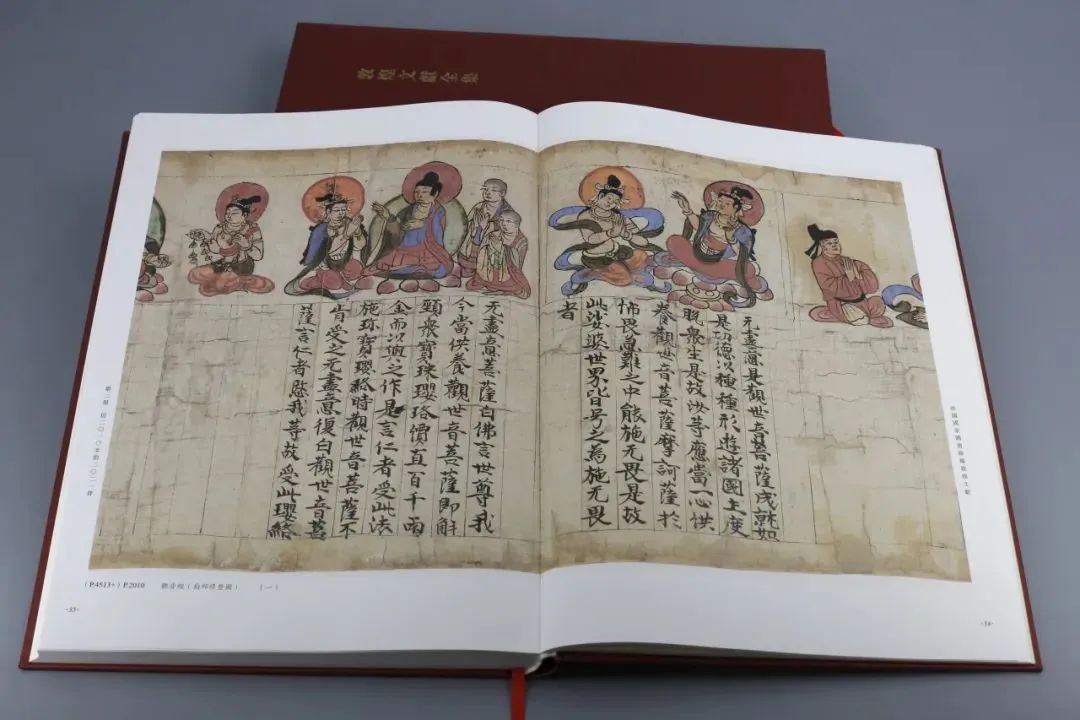 敦煌文獻全集
无盡意是觀世音菩薩成就如
是功德以種種形遊諸國土度
脫衆生是故汝等應當一心供
養觀世音菩薩摩訶薩於
怖畏急難之中能施无畏是故
此娑婆世界皆号之為施无畏
者
无盡意菩薩白佛言世尊我
今當供養觀世音菩薩即解
頸衆寶珠瓔珞價直百千兩
金而以與之作是言仁者受此法
施珍寶瓔珞時觀世音菩薩不
肯受之无盡意復白觀世音菩
薩言仁者愍我等故受此瓔珞
(P.4513+) P.2010 觀音經 （一）